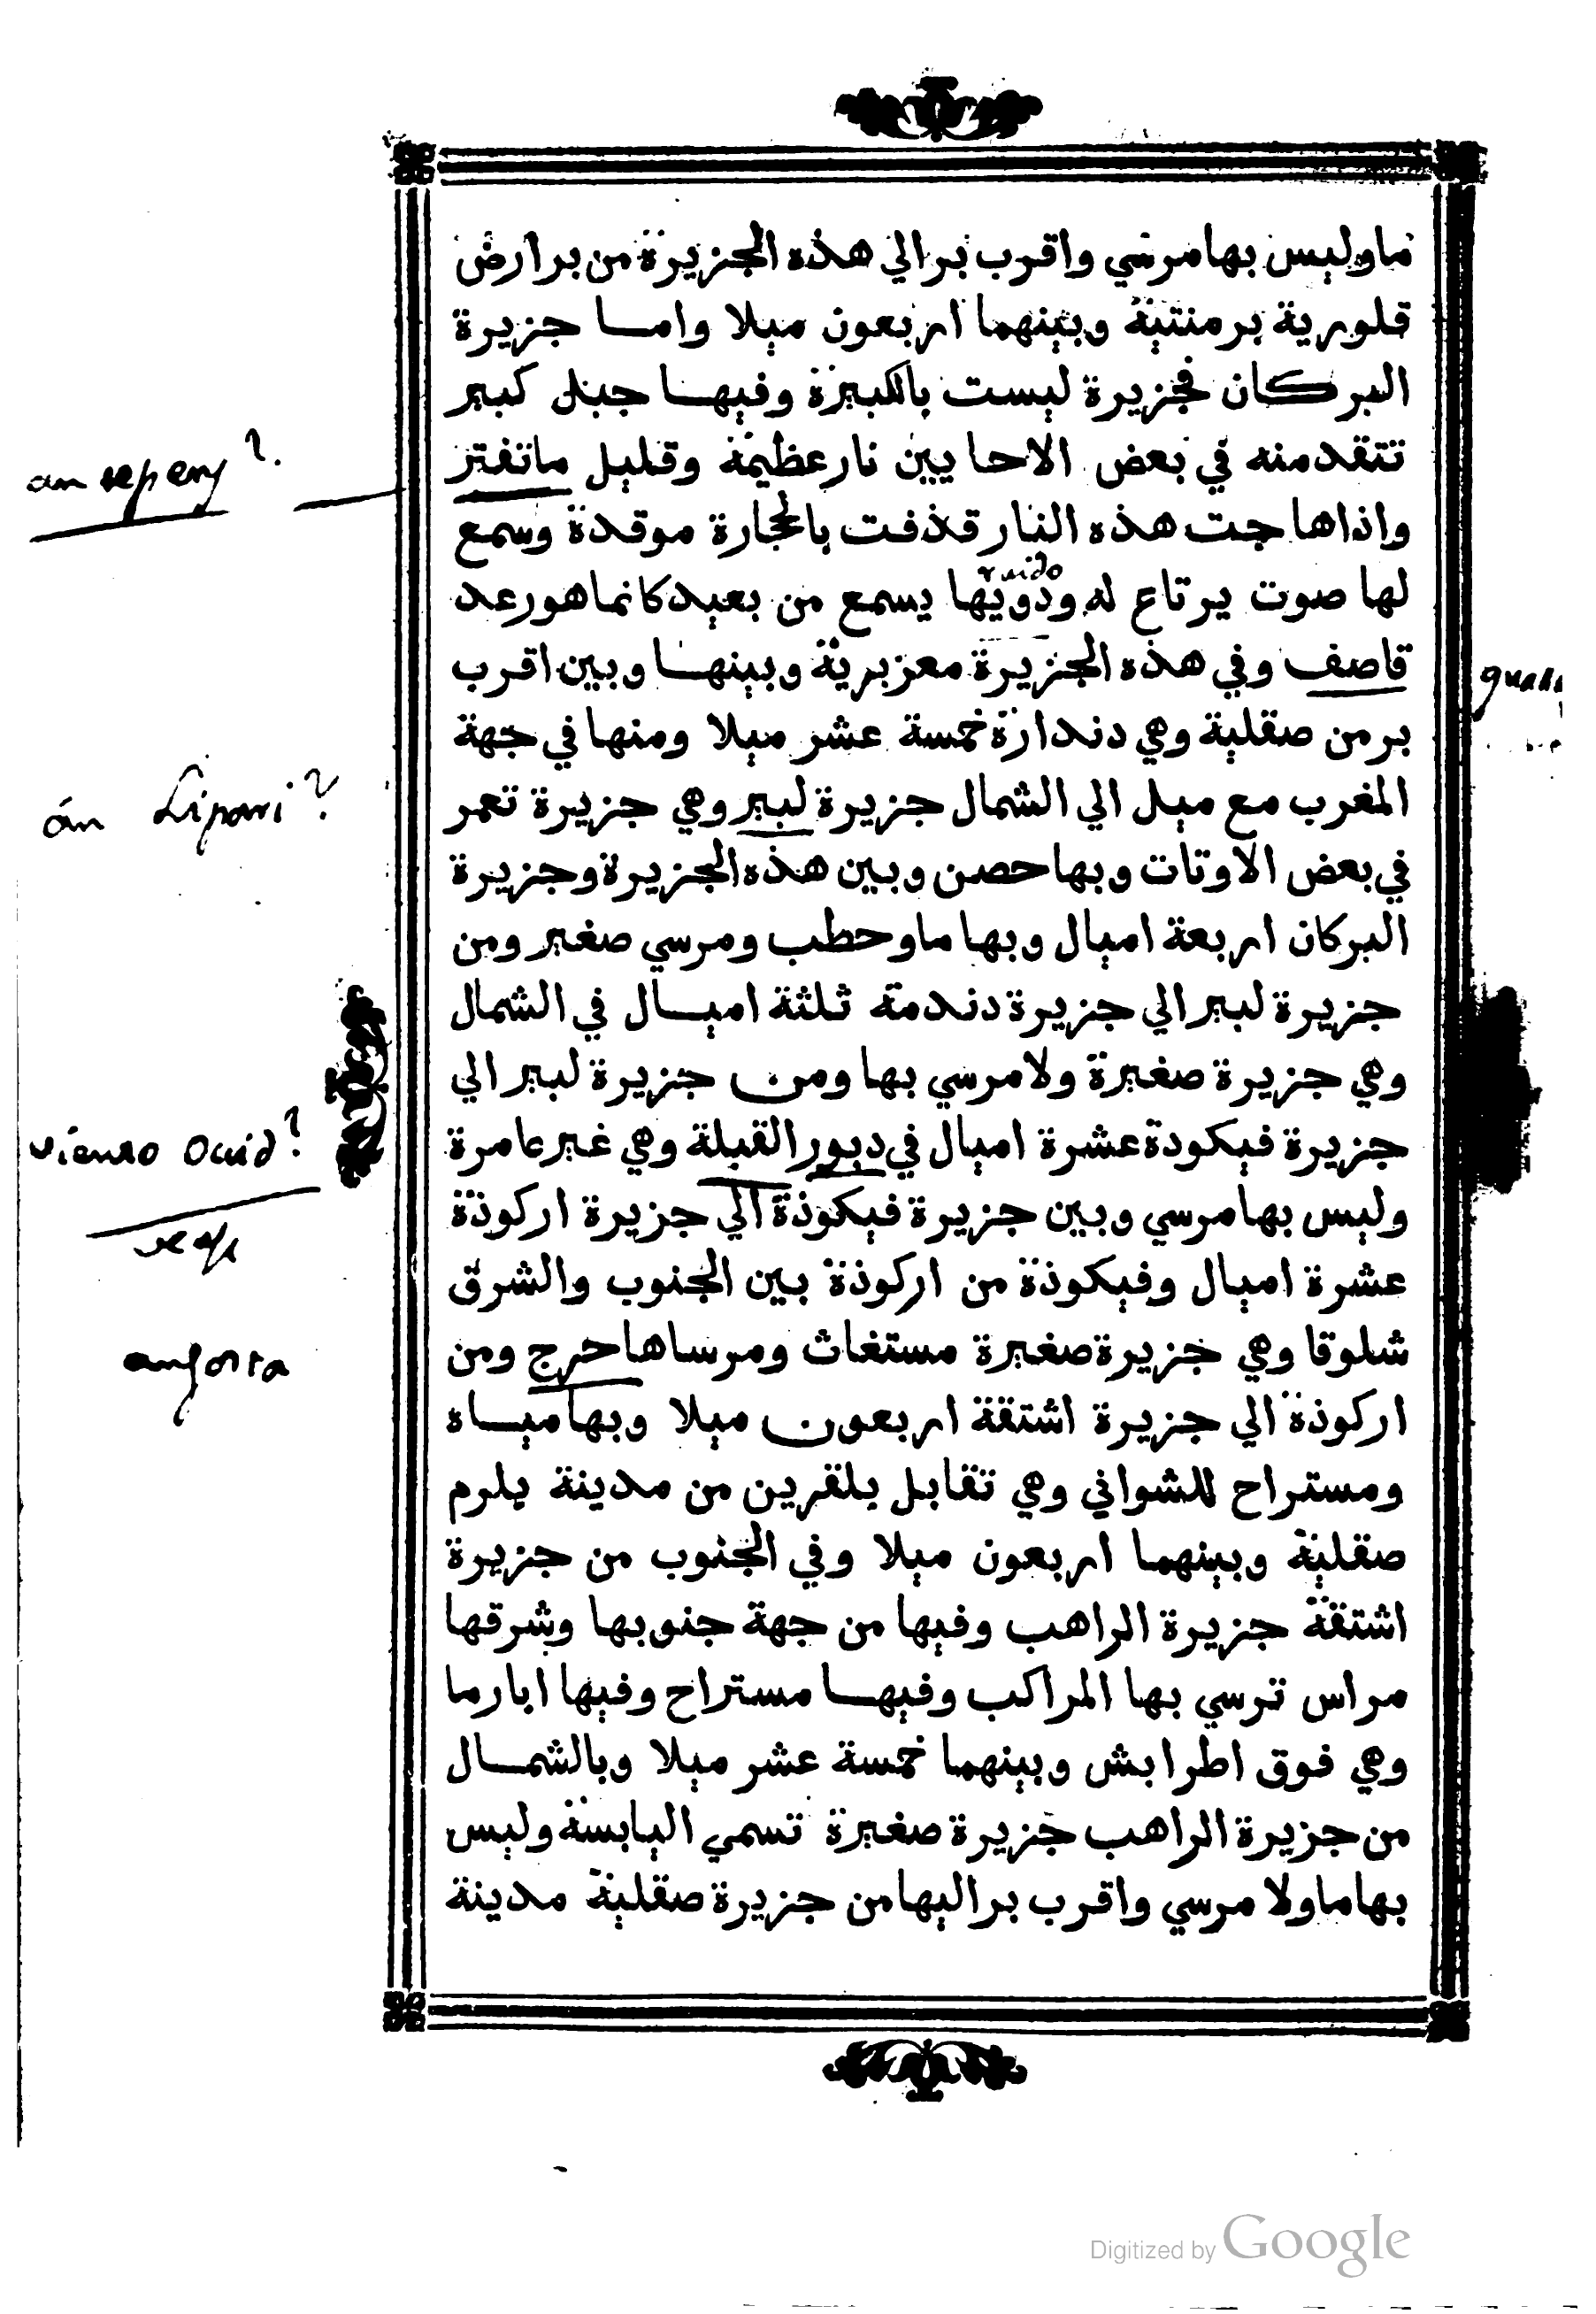 ماوليس بها مرسي واقرب بر الي هذه الجزيرة من بر ارض
قلورية برمنتية وبينهما اربعون ميلا واما جزيرة
البركان فجزيرة ليست بالكبيرة وفيها جبل كبير
تتقد منه في بعض الاحايين نار عظيمة وقليل ماتفتر
واذا هاجت هذه النار قذفت بالحجارة موقدة وسمع
ruido
لها صوت يرتاع له ودويها يسمع من بعيد كانما هو رعد
قاصف وفي هذه الجزيرة معز برية وبينها وبين اقرب
بر من صقلية وهي دندارة خمسة عشر ميلا ومنها في جهة
المغرب مع ميل الي الشمال جزيرة لبير وهي جزيرة تعمر
في بعض الاوتات وبها حصن وبين هذه الجزيرة وجزيرة
البركان اربعة اميال وبها ماو حطب ومرسي صغير ومن
جزيرة لبير الي جزيرة دندمة ثلثة اميال في الشمال
وهي جزيرة صغيرة ولا مرسي بها ومن جزيرة لبير الي
جزيرة فيكودة عشرة اميال في دبور القبلة وهي غير عامرة
وليس بها مرسي وبين جزيرة فيكوذة الي جزيرة اركوذة
عشرة اميال وفيكوذة من اركوذة بين الجنوب والشرق
شلوقا وهي جزيرة صغيرة مستغاث ومرساها حرج ومن
اركوذة الي جزيرة اشتقة اربعون ميلا وبها مياه
ومستراح للشواني وهي تقابل بلقرين من مدينة يلرم
صقلية وبينهما اربعون ميلا وفي الجنوب من جزيرة
اشتقة جزيرة الراهب وفيها من جهة جنوبها وشرقها
مراس ترسي بها المراكب وفيها مستراح وفيها ابار ما
وهي فوق اطرابش وبينهما خمسة عشر ميلا وبالشمال
من جزيرة الراهب جزيرة صغيرة تسمي اليابسة وليس
بها ماولا مرسي واقرب بر اليها من جزيرة صقلية مدينة
án Lipari?
angosta
Digitized by Google